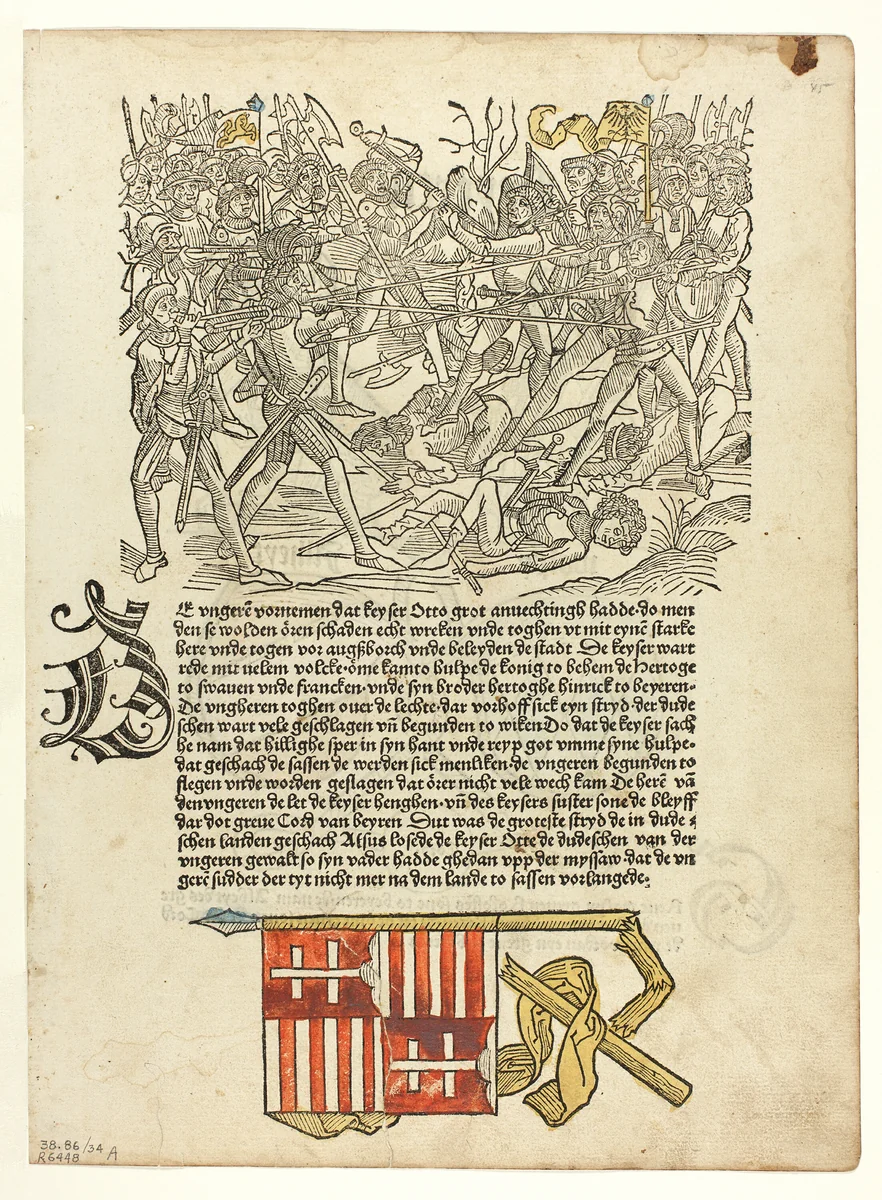 DE vngerē vornemen dat keyser Otto grot anuechtingh hadde·do men
den se wolden ören schaden echt wreken vnde toghen vt mit eynē starke
here vnde togen vor augßborch vnde beleyden de stadt De keyser wart
rede mit velem volcke·öme kam to hulpe de konig to behem de hertoge
to swauen vnde francken·vnde syn broder hertoghe hinrick to beyeren·
De vngheren toghen ouer de lechte·dar vorhoff sick eyn stryd·der dude
schen wart vele geschlagen vñ begunden to wiken Do dat de keyser sach
he nam dat hillighe sper in syn hant vnde reyp got vmme syne hulpe·
dat geschach de sassen de werden sick menliken·de vngeren begunden to
flegen vnde worden geslagen dat örer nicht vele wech kam De herē vā
den vngeren de let de keyser henghen·vñ des keysers suster sone de bleyff
dar dot greue Cord van beyren Dut was de groteste stryd de in dude
schen landen geschach Alsus losede de keyser Otte de dudeschen van der
vngeren gewalt so syn vader hadde ghedan vpp der myssaw·dat de vn
gerē sudder der tyt nicht mer na dem lande to sassen vorlangede·
38.86/34 A
R6448